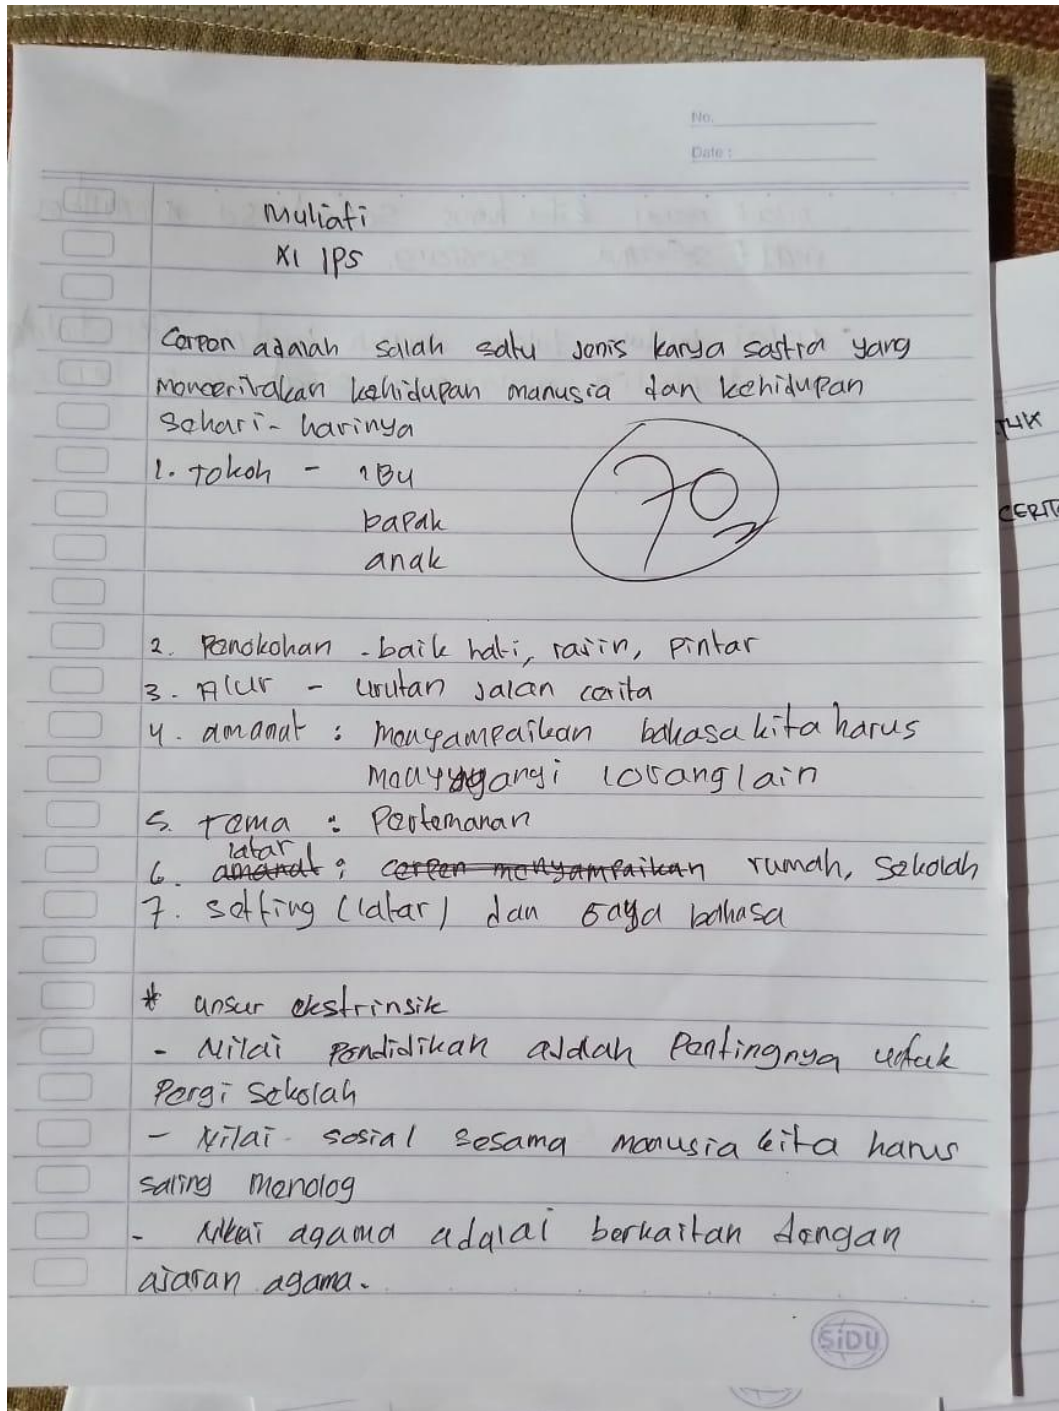 No.
Date :
Muliati
XI IPS
Cerpen adalah salah satu jenis karya sastra yang
menceritakan kehidupan manusia dan kehidupan
sehari-harinya
1. Tokoh - iBu
bapak
anak
70
2. Penokohan - baik hati, rajin, pintar
3. Alur - urutan jalan cerita
4. amanat : menyampaikan bahasa kita harus
orang lain
5. Tema : Pertemanan
latar
6. amanat : cerpen menyampaikan rumah, sekolah
7. setting (latar) dan gaya bahasa
* unsur ekstrinsik
- Nilai Pendidikan adalah Pentingnya untuk
Pergi sekolah
- Nilai sosial sesama manusia kita harus
saling menolog
- Nilai agama adalai berkaitan dengan
ajaran agama.
SiDU